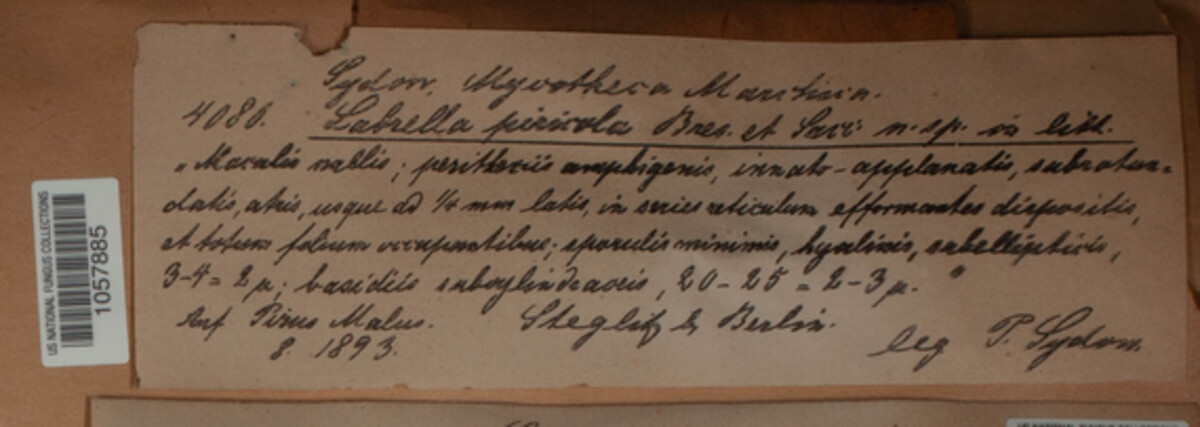 US NATIONAL FUNGUS COLLECTIONS
1057885
Sydow, Mycotheca Marchica.
4086. Labrella piricola Bres. et Sacc. n. sp. in litt.
„Maculis nullis; peritheciis amphigenis, innato-applanatis, subrotun=
datis, atris, usque ad ¼ mm latis, in series reticulum efformantes dispositis,
et totum folium occupantibus; sporulis minimis, hyalinis, subellipticis,
3-4 = 2 µ; basidiis subcylindraceis, 20-25 = 2-3 µ."
Auf Pirus Malus. Steglitz b. Berlin.
8. 1893. leg P. Sydow.